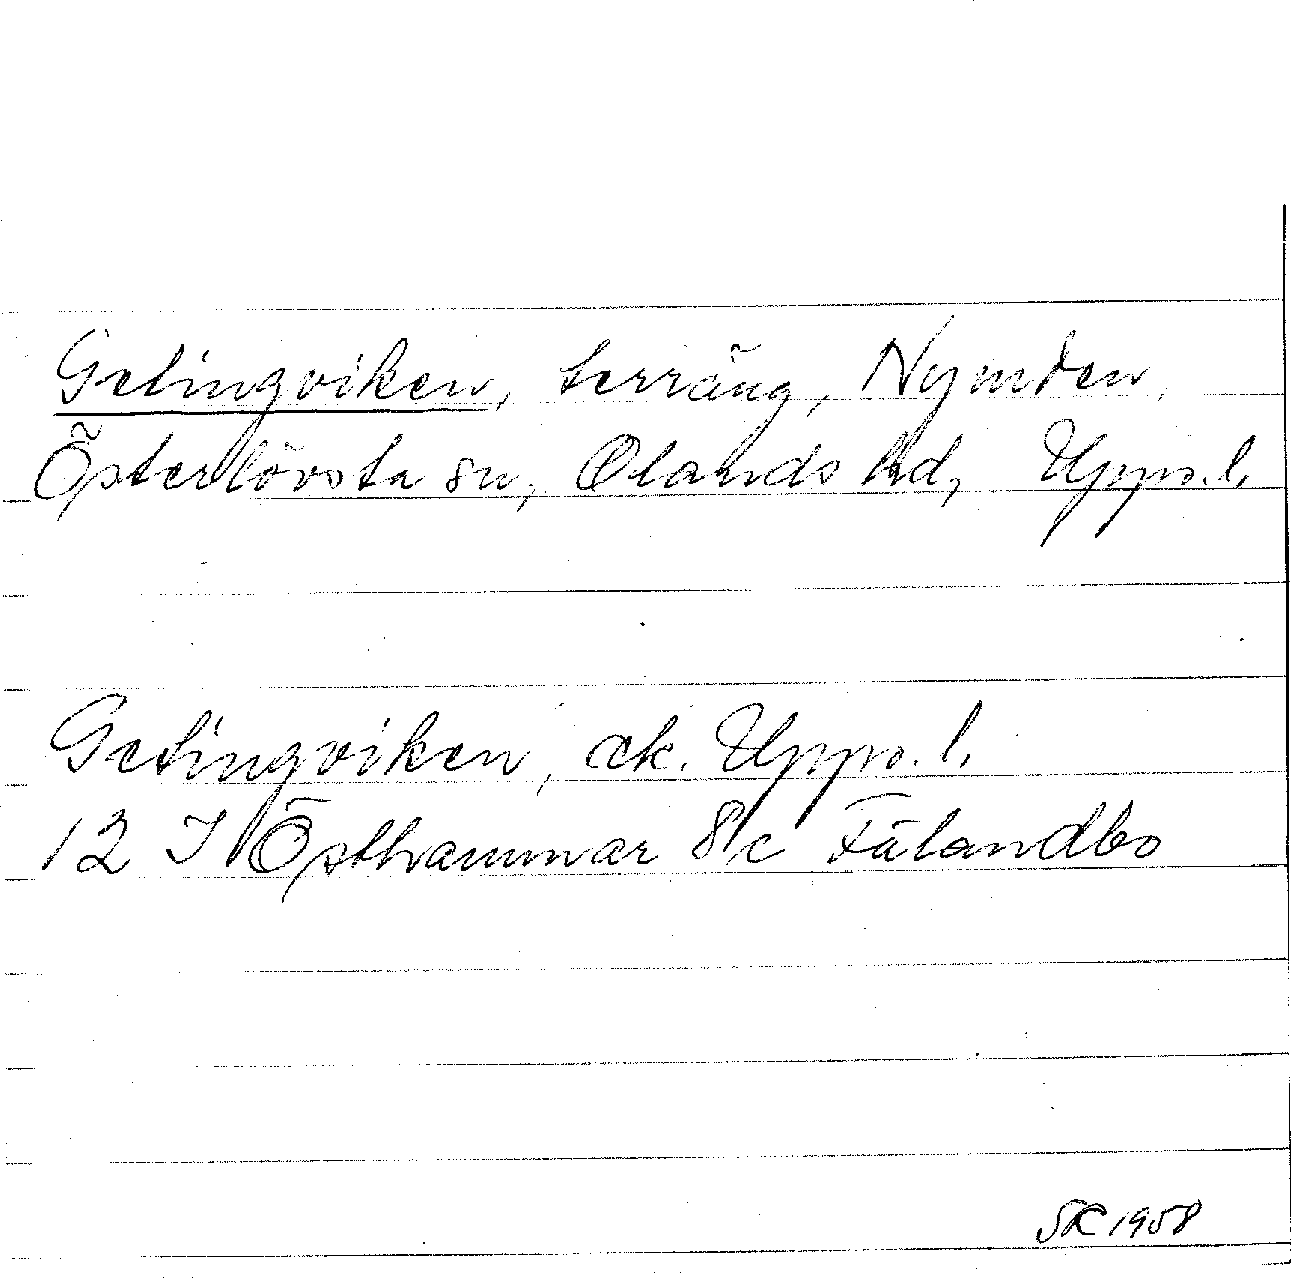 Getingviken, terräng, Nymden,
Österlövsta sn, Olands hd, Upps. l.
Getingviken, ek. Upps. l.
12 I Östhammar 8 c Fälandbo
SK 1958